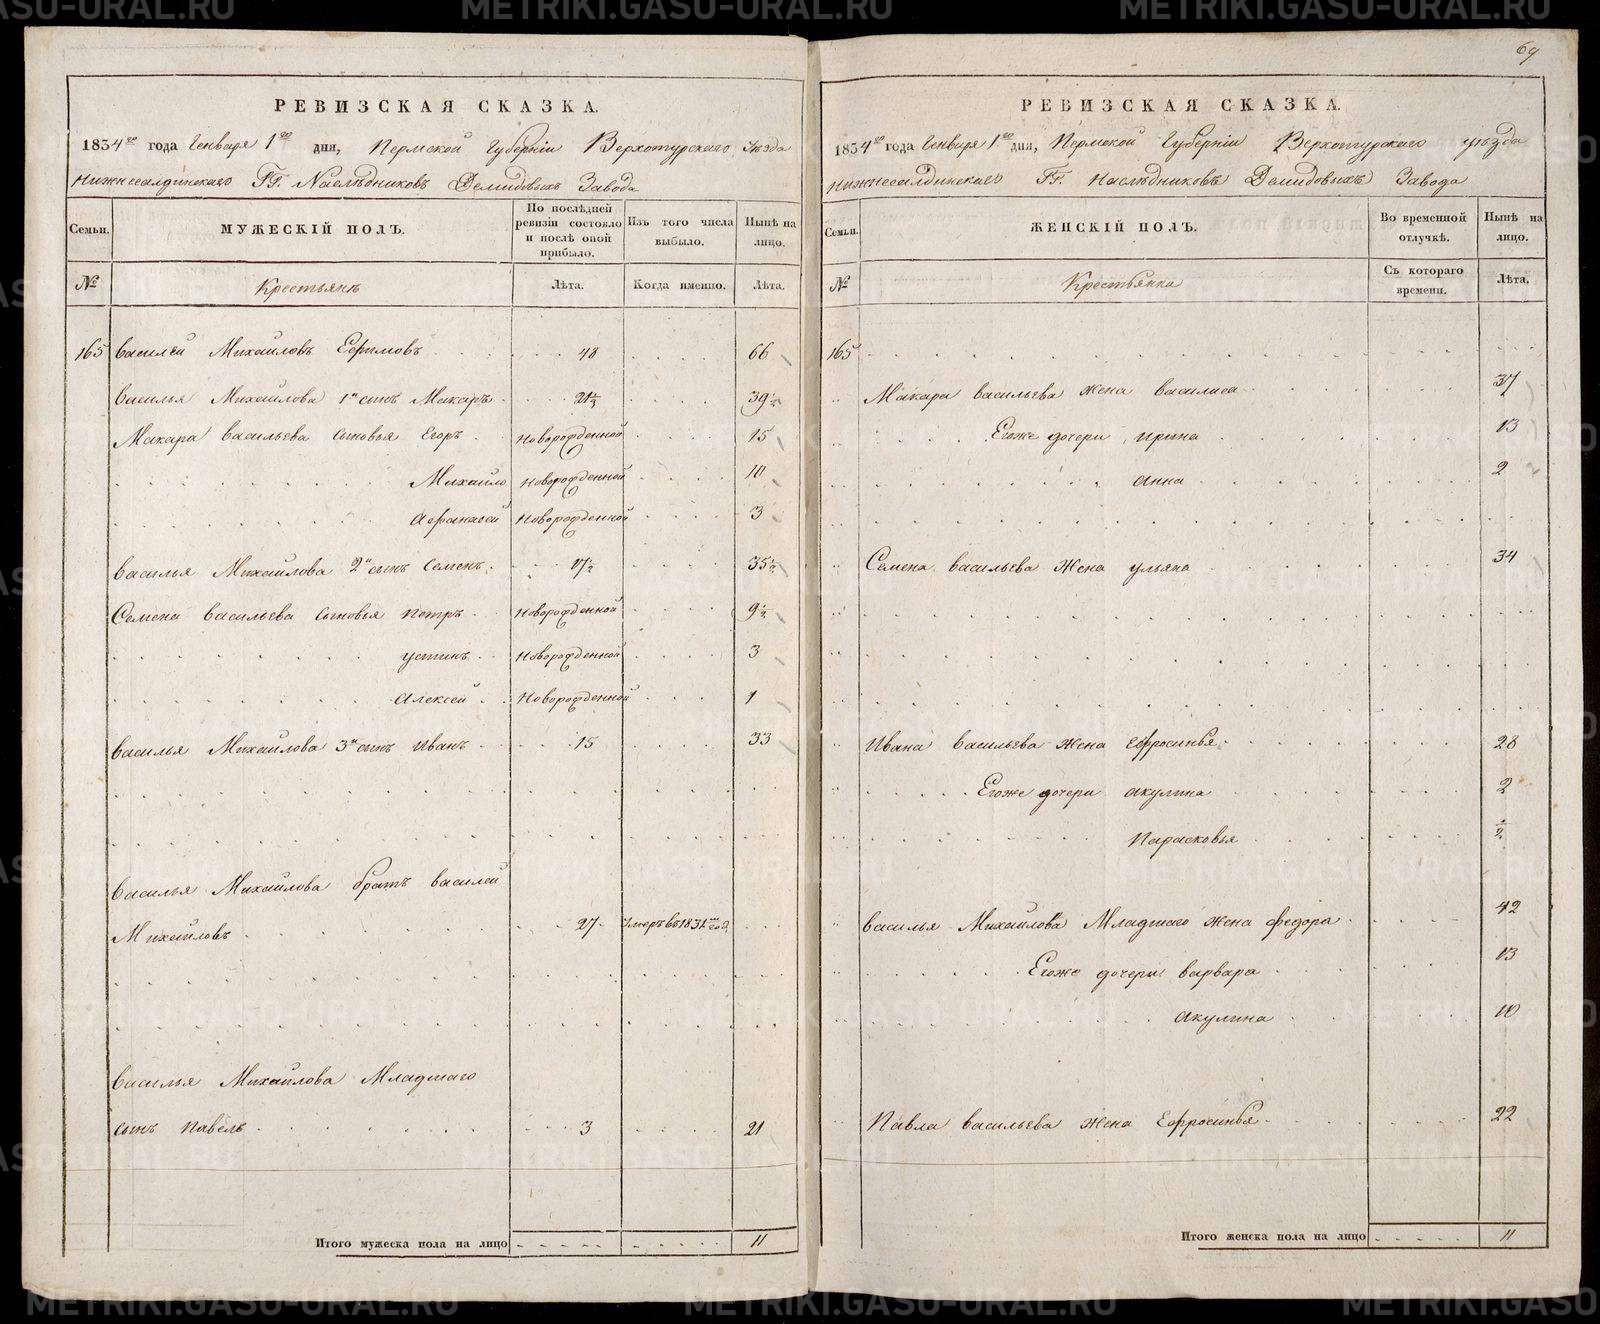 69
РЕВИЗСКАЯ СКАЗКА.
1834го года Генваря 1го дня, Пермской Губерніи Верхотурскаго Уѣзда
Нижнесалдинскаго ГГ. Наслѣдниковъ Демидовыхъ Завода
Семьи. МУЖЕСКІЙ ПОЛЪ. По послѣдней ревизіи состояло и послѣ оной прибыло. Изъ того числа выбыло. Нынѣ на лицо.
№ Крестьянъ Лѣта. Когда именно. Лѣта.
165 Василей Михайловъ Ефимовъ 48 66
Василья Михайлова 1й сынъ Макаръ 21½ 39½
Макара Васильева сыновья Егоръ Новорожденной 15
Михайло Новорожденной 10
Афанасей Новорожденной 3
Василья Михайлова 2й сынъ Семенъ 17½ 35½
Семена Васильева сыновья Петръ Новорожденной 9½
Устинъ Новорожденной 3
Алексей Новорожденной 1
Василья Михайлова 3й сынъ Иванъ 15 33
Василья Михайлова братъ Василей
Михайловъ 27 Умеръ въ 1831 году
Василья Михайлова Младшаго
сынъ Павелъ 3 21
Итого мужеска пола на лицо 11
РЕВИЗСКАЯ СКАЗКА.
1834го года Генваря 1го дня, Пермской Губерніи Верхотурскаго уѣзда
Нижнесалдинскаго ГГ. Наслѣдниковъ Демидовыхъ Завода
Семьи. ЖЕНСКІЙ ПОЛЪ. Во временной отлучкѣ. Нынѣ на лицо.
№ Крестьянка Съ котораго времени. Лѣта.
165
Макара Васильева жена Василиса 37
Егоже дочери Ирина 13
Анна 2
Семена Васильева жена Ульяна 34
Ивана Васильева жена Ефросинья 28
Егоже дочери Акулина 2
Парасковья ½
Василья Михайлова Младшаго жена Федора 42
Егоже дочери Варвара 13
Акулина 10
Павла Васильева жена Ефросинья 22
Итого женска пола на лицо 11
METRIKI.GASO-URAL.RU